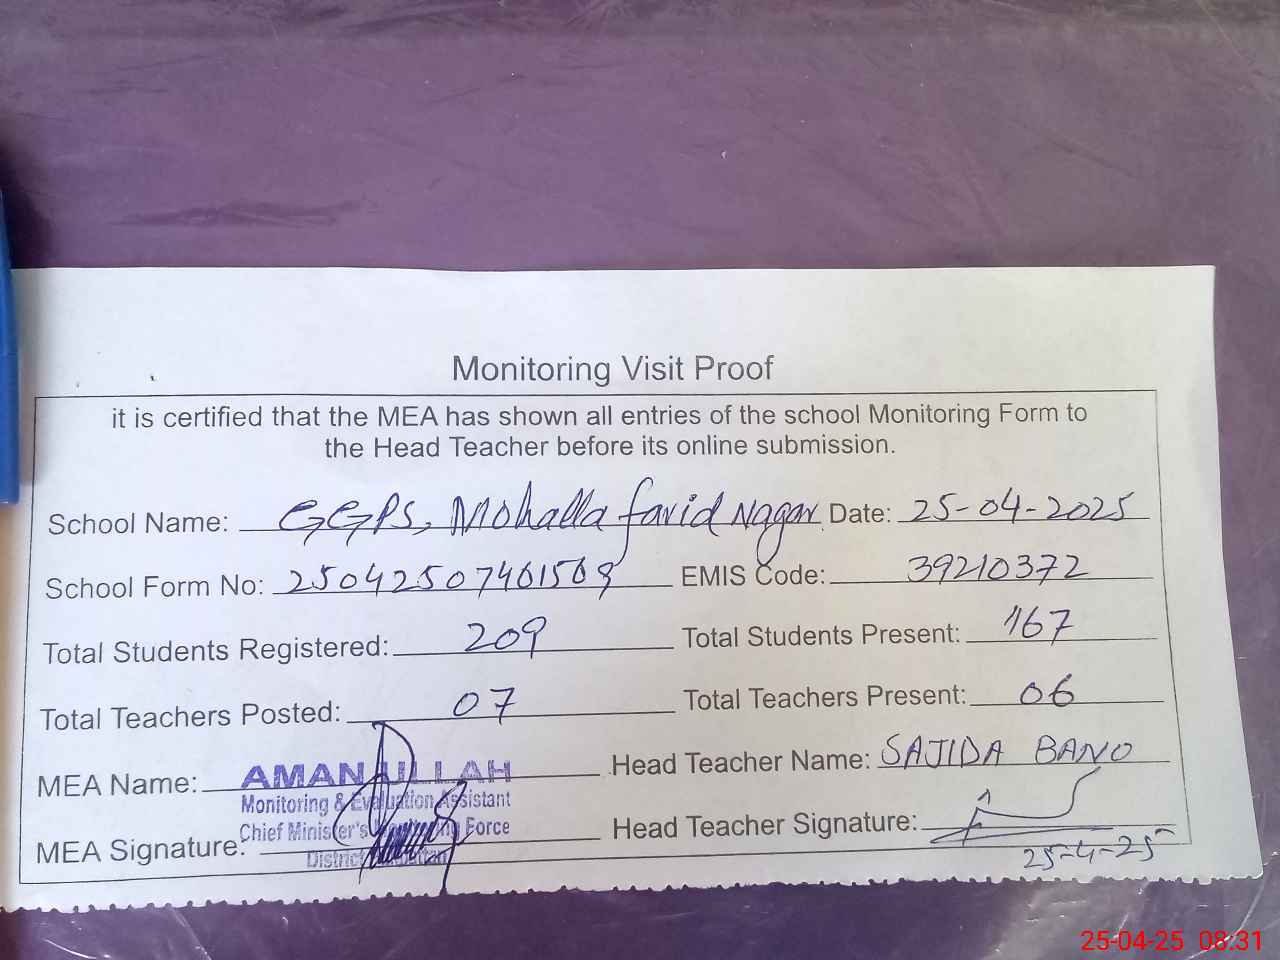 Monitoring Visit Proof
it is certified that the MEA has shown all entries of the school Monitoring Form to
the Head Teacher before its online submission.
School Name: GGPS, Mohalla farid Nagar Date: 25-04-2025
School Form No: EMIS Code: 39210372
Total Students Registered: 209 Total Students Present: 167
Total Teachers Posted: 07 Total Teachers Present: 06
MEA Name: AMAN ULLAH Head Teacher Name: SAJIDA BANO
Monitoring & Evaluation Assistant
Chief Minister's Monitoring Force
MEA Signature: Head Teacher Signature:
District
25-4-25
25-04-25 08:31